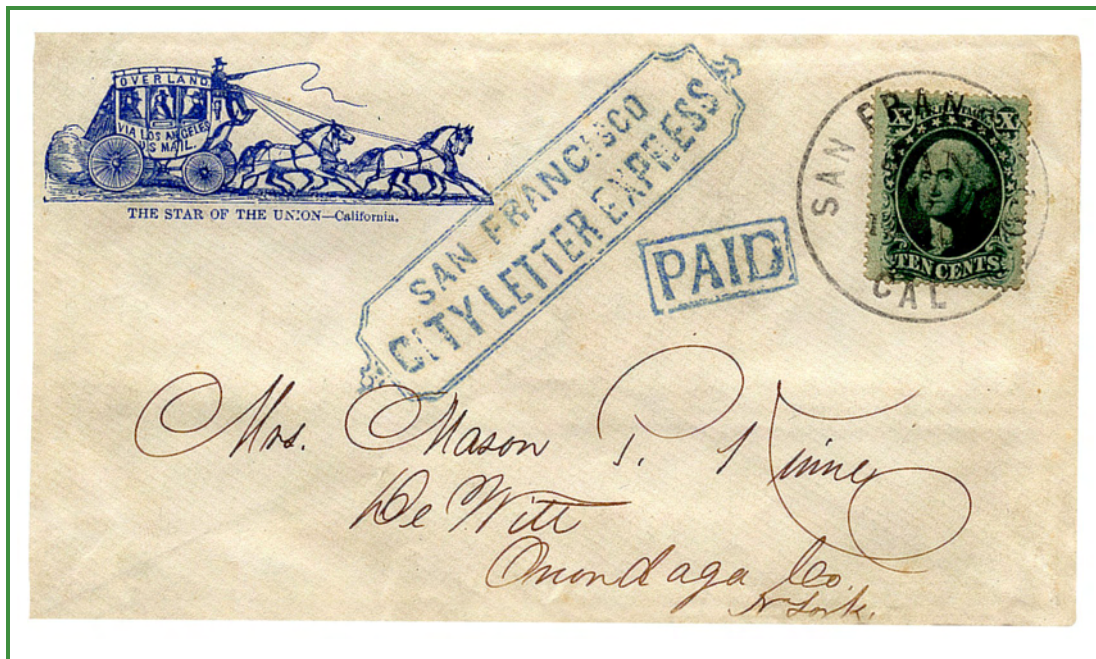 OVERLAND
VIA LOS ANGELES
U S MAIL.
THE STAR OF THE UNION—California.
SAN FRANCISCO
CITY LETTER EXPRESS
PAID
SAN FRAN
CAL
X X
TEN CENTS
Mrs. Mason P. Kinney
De Witt
Onondaga Co.
N York.